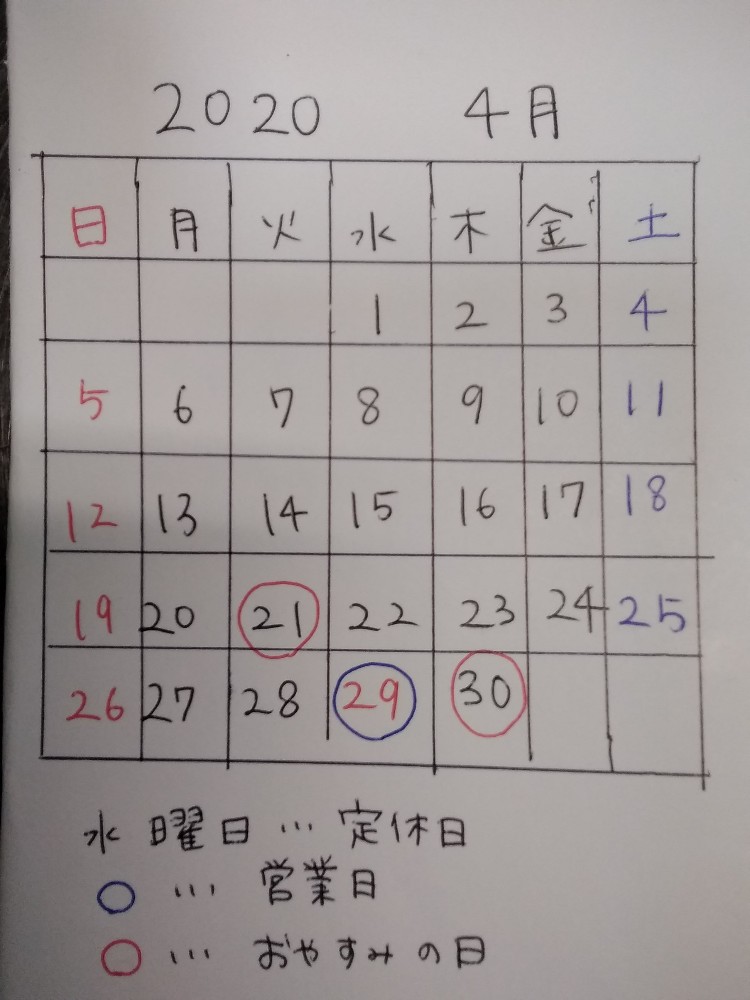 2020 4月
日 月 火 水 木 金 土
1 2 3 4
5 6 7 8 9 10 11
12 13 14 15 16 17 18
19 20 21 22 23 24 25
26 27 28 29 30
水曜日…定休日
○…営業日
○…おやすみの日